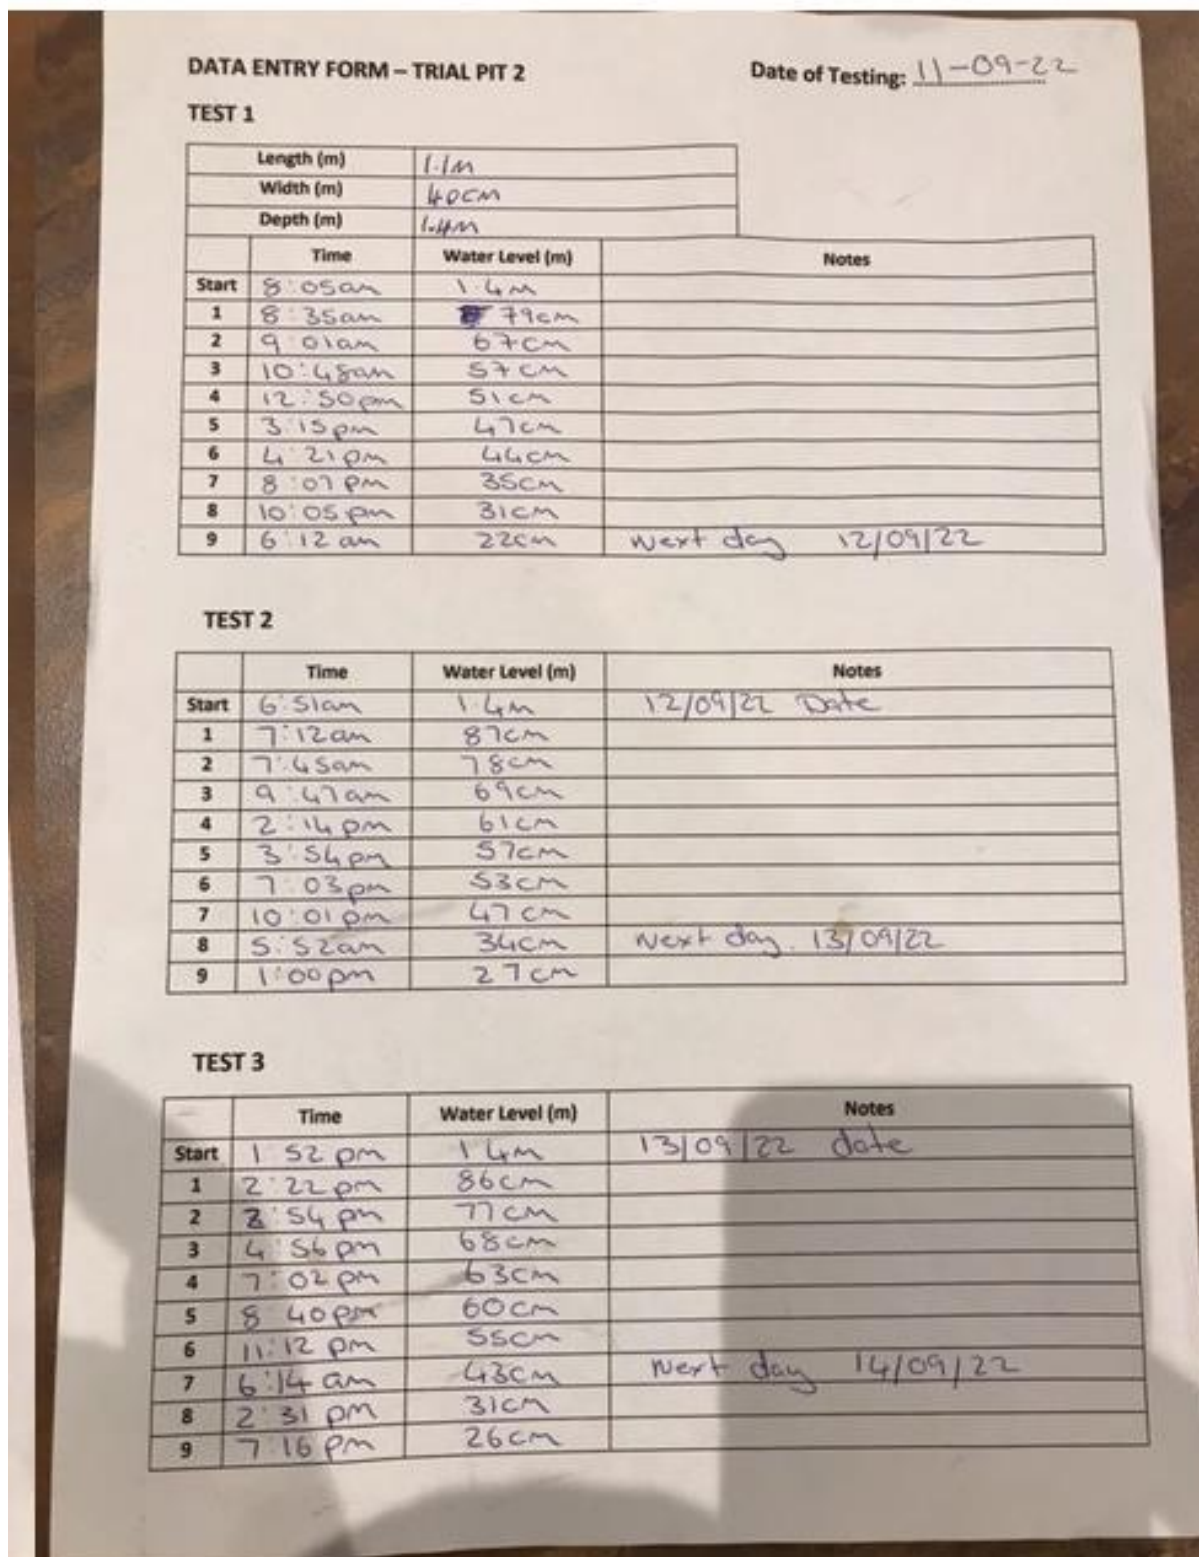 DATA ENTRY FORM – TRIAL PIT 2 Date of Testing: 11-09-22
TEST 1
Length (m) 1.1m
Width (m) 40cm
Depth (m) 1.4m
Time Water Level (m) Notes
Start 8:05am 1.4m
1 8:35am 79cm
2 9:01am 67cm
3 10:48am 57cm
4 12:50pm 51cm
5 3:15pm 47cm
6 4:21pm 44cm
7 8:07pm 35cm
8 10:05pm 31cm
9 6:12am 22cm Next day 12/09/22
TEST 2
Time Water Level (m) Notes
Start 6:51am 1.4m 12/09/22 Date
1 7:12am 87cm
2 7:45am 78cm
3 9:47am 69cm
4 2:14pm 61cm
5 3:54pm 57cm
6 7:03pm 53cm
7 10:01pm 47cm
8 5:52am 34cm Next day. 13/09/22
9 1:00pm 27cm
TEST 3
Time Water Level (m) Notes
Start 1:52pm 1.4m 13/09/22 date
1 2:22pm 86cm
2 2:54pm 77cm
3 4:56pm 68cm
4 7:02pm 63cm
5 8:40pm 60cm
6 11:12pm 55cm
7 6:14am 43cm Next day 14/09/22
8 2:31pm 31cm
9 7:16pm 26cm